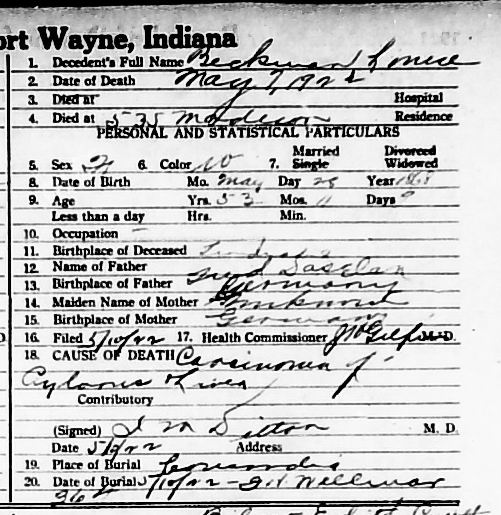 ort Wayne, Indiana
1. Decedent's Full Name Beckman Louise
2. Date of Death May 7, 1922
3. Died at Hospital
4. Died at 535 Madison Residence
PERSONAL AND STATISTICAL PARTICULARS
Married Divorced
5. Sex F 6. Color W 7. Single Widowed
8. Date of Birth Mo. May Day 28 Year 1868
9. Age Yrs. 53 Mos. 11 Days 9
Less than a day Hrs. Min.
10. Occupation —
11. Birthplace of Deceased
12. Name of Father Fred
13. Birthplace of Father Germany
14. Maiden Name of Mother Unknown
15. Birthplace of Mother Germany
16. Filed 5/10/22 17. Health Commissioner M.D.
18. CAUSE OF DEATH Carcinoma of
Pylorus & Liver
Contributory
(Signed) M. D.
Date 5/9/22 Address
19. Place of Burial Concordia
20. Date of Burial 5/10/22 -